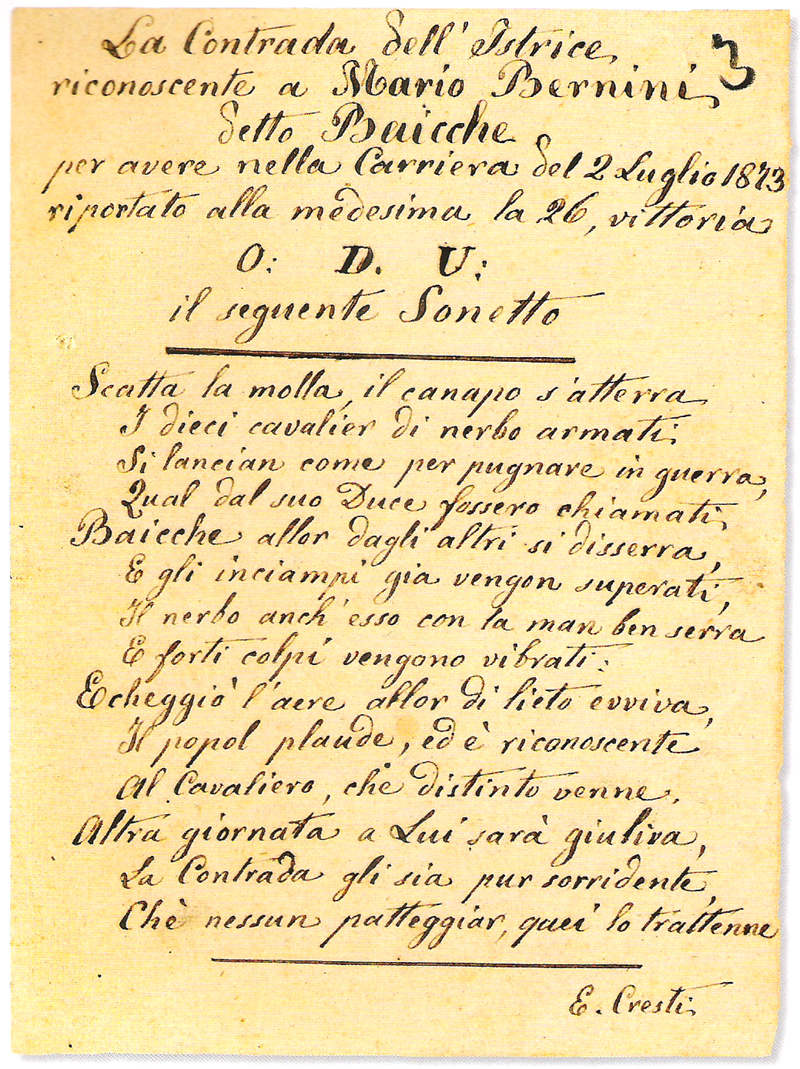 La Contrada dell' Istrice
3
riconoscente a Mario Bernini
detto Baicche
per avere nella Carriera del 2 Luglio 1873
riportato alla medesima la 26, vittoria
O: D. U:
il seguente Sonetto
Scatta la molla, il canapo s'atterra
I dieci cavalier di nerbo armati
Si lancian come per pugnare in guerra,
Qual dal suo Duce fossero chiamati,
Baicche allor dagli altri si disserra,
E gli inciampi gia vengon superati,
Il nerbo anch'esso con la man ben serra
E forti colpi vengono vibrati:
Echeggiò l'aere allor di lieto evviva,
Il popol plaude, ed è riconoscente
Al Cavaliero, che distinto venne.
Altra giornata a Lui sarà giuliva,
La Contrada gli sia pur sorridente,
Chè nessun patteggiar, quei lo trattenne
E. Cresti